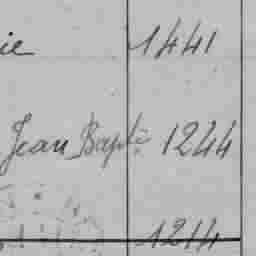 ie 1441
Jean Bapte 1244
1214